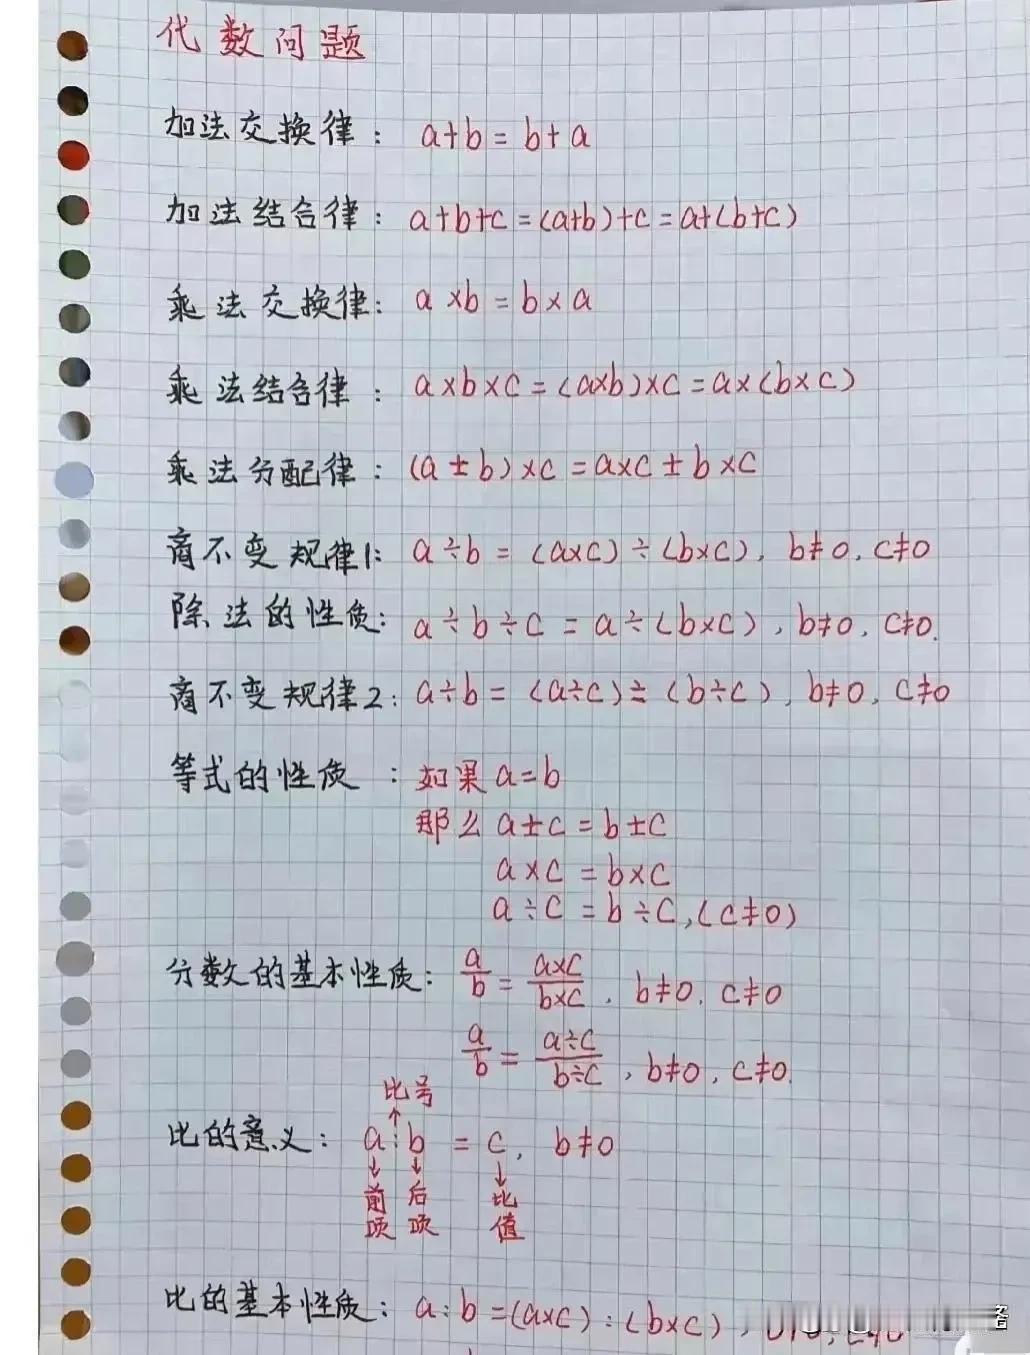 代数问题
加法交换律: a+b=b+a
加法结合律: a+b+c=(a+b)+c=a+(b+c)
乘法交换律: a×b=b×a
乘法结合律: a×b×c=(a×b)×c=a×(b×c)
乘法分配律: (a±b)×c=a×c±b×c
商不变规律1: a÷b=(a×c)÷(b×c), b≠0, c≠0
除法的性质: a÷b÷c=a÷(b×c), b≠0, c≠0.
商不变规律2: a÷b=(a÷c)÷(b÷c), b≠0, c≠0
等式的性质: 如果 a=b
那么 a±c=b±c
a×c=b×c
a÷c=b÷c,(c≠0)
分数的基本性质: a/b=a×c/b×c, b≠0, c≠0
a/b=a÷c/b÷c, b≠0, c≠0.
比号
比的意义: a:b=c, b≠0
前项 后项 比值
比的基本性质: a:b=(a×c):(b×c),